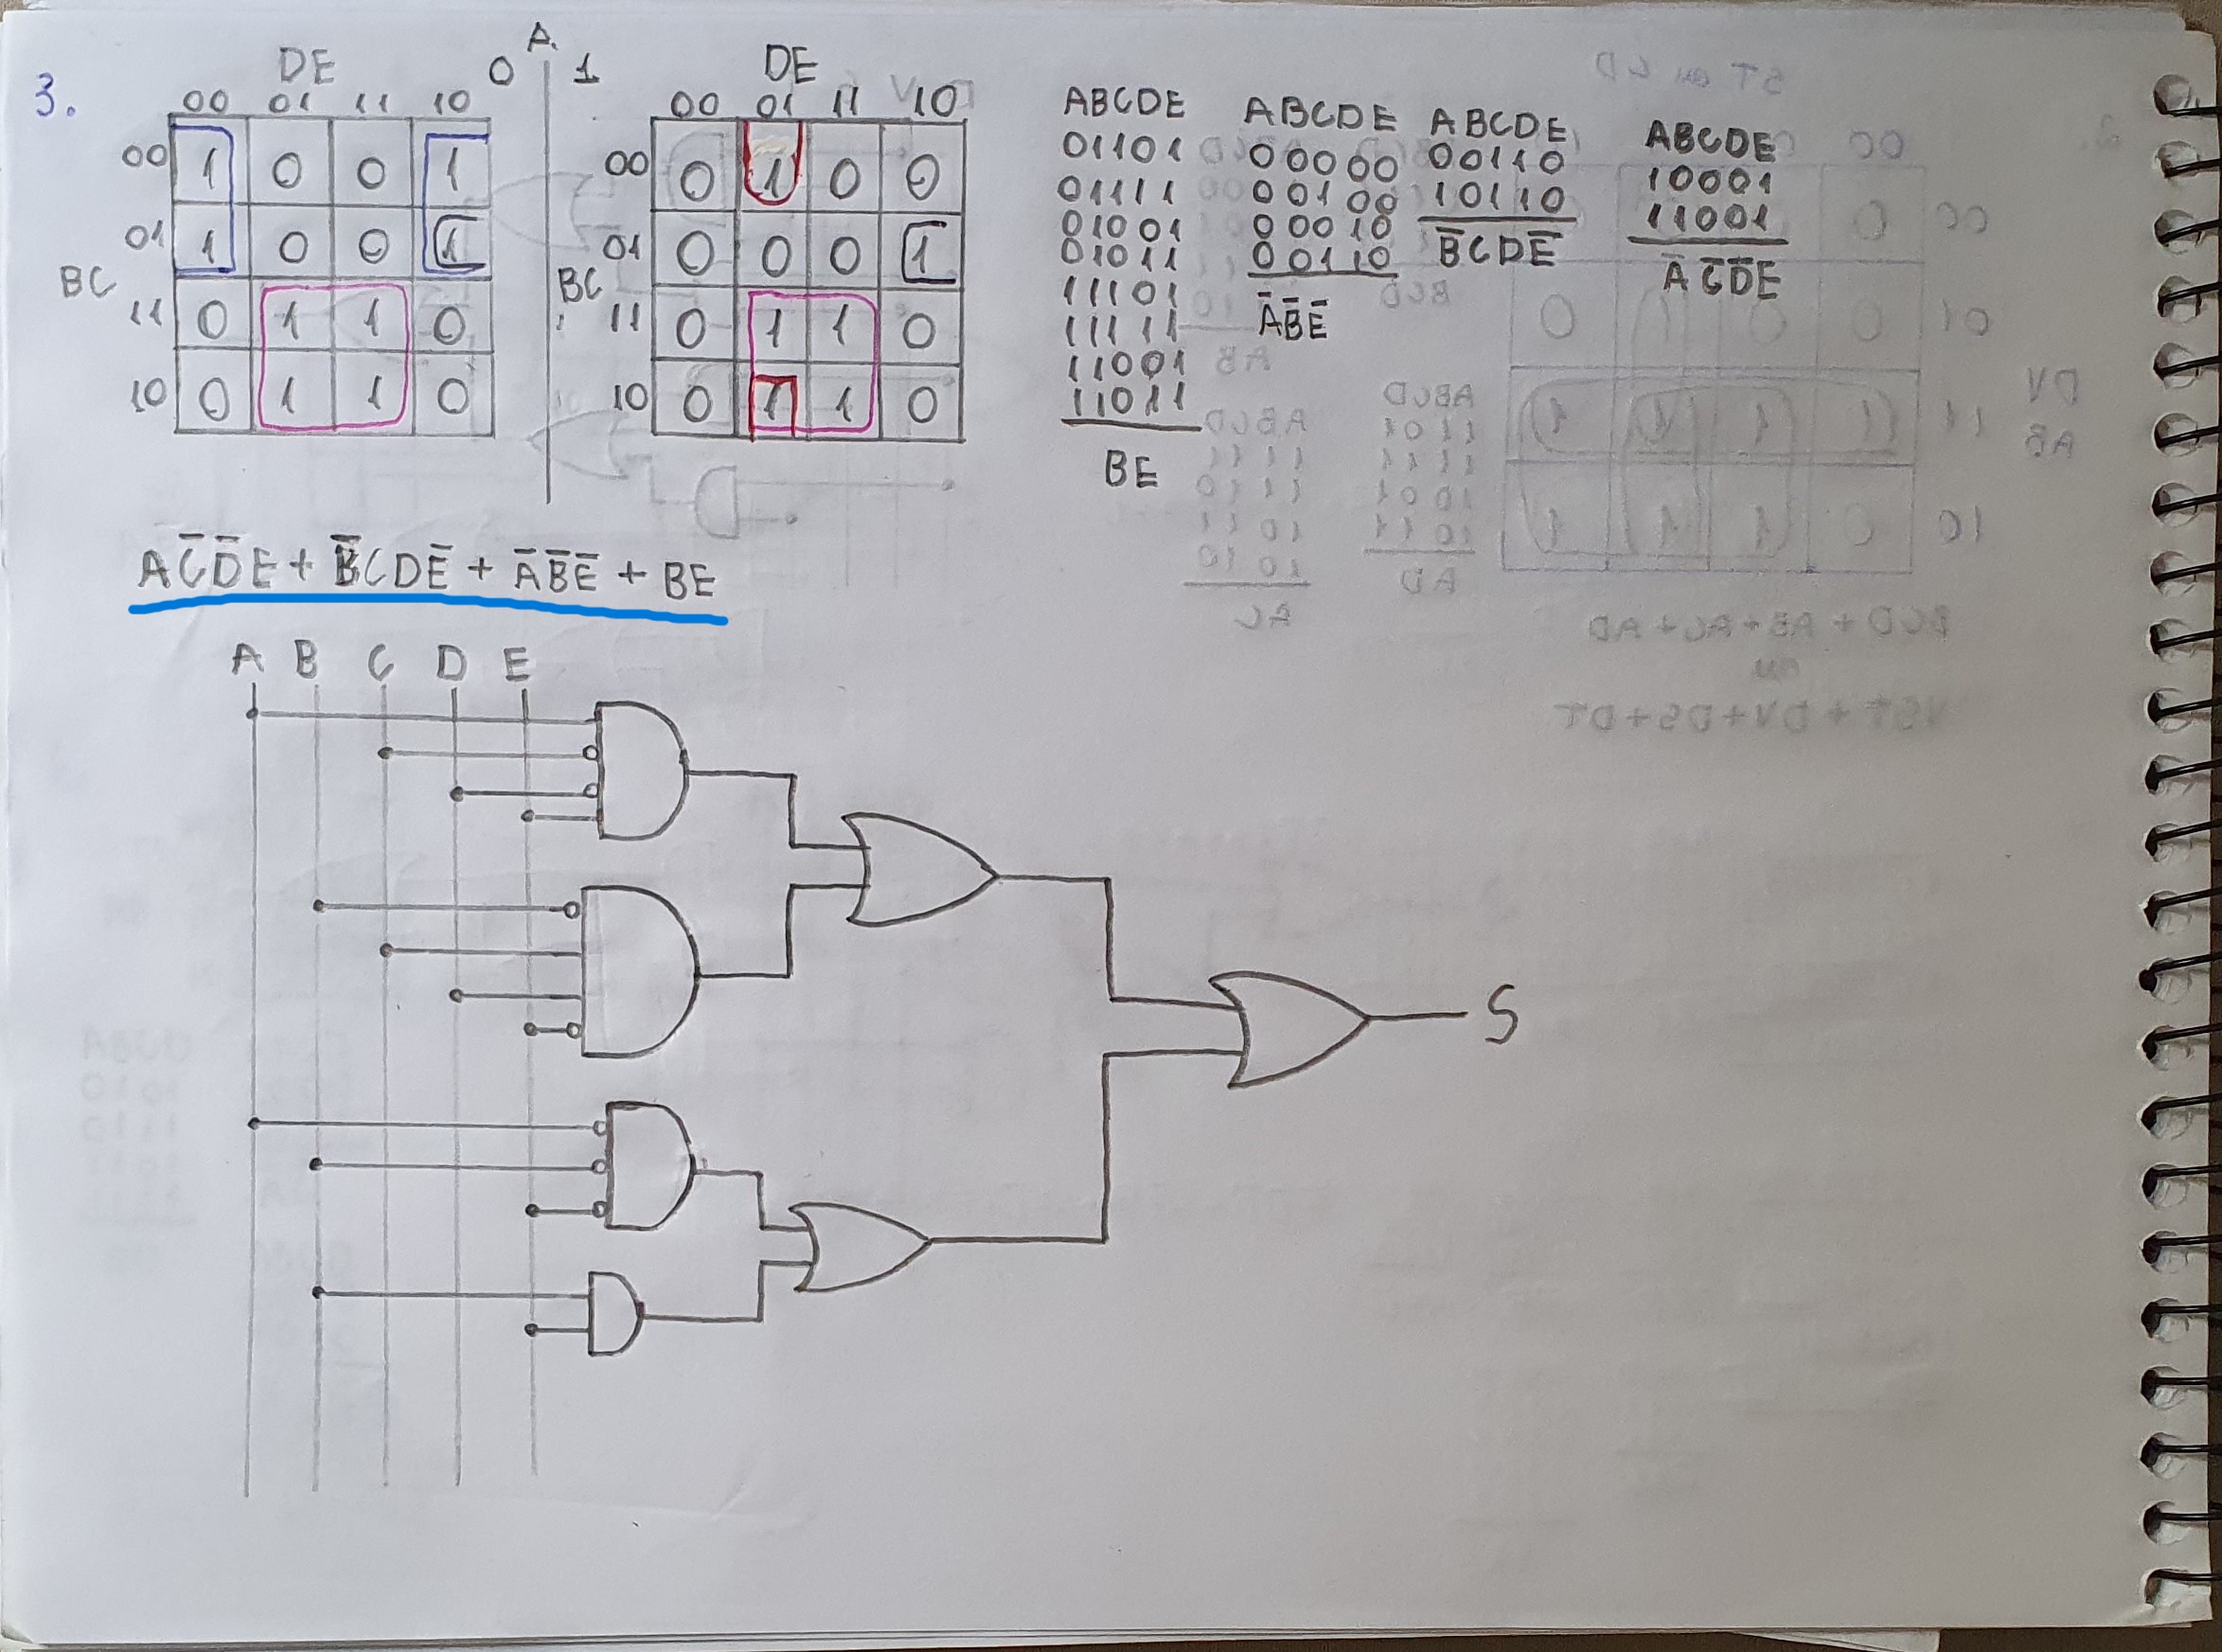 3.
A
0 1
DE
00 01 11 10
00 1 0 0 1
01 1 0 0 1
BC
11 0 1 1 0
10 0 1 1 0
DE
00 01 11 10
00 0 1 0 0
01 0 0 0 1
BC
11 0 1 1 0
10 0 1 1 0
ABCDE
01101
01111
01001
01011
11101
11111
11001
11011
BE
ABCDE
00000
00100
00010
00110
A̅B̅E̅
ABCDE
00110
10110
B̅CDE̅
ABCDE
10001
11001
AC̅D̅E
AC̅D̅E + B̅CDE̅ + A̅B̅E̅ + BE
A B C D E
S